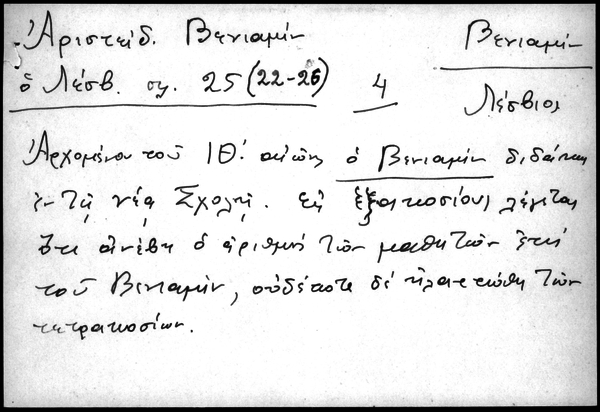 Ἀριστείδ. Βενιαμὶν
Βενιαμὶν
ὁ Λέσβ. σλ. 25 (22-26)
4
Λέσβιος
Ἀρχομένου τοῦ ΙΘ΄ αἰῶνος ὁ Βενιαμὶν διδάσκει
ἐν τῇ νέᾳ Σχολῇ. Εἰς ἑξακοσίους λέγεται
ὅτι ἀνέβη ὁ ἀριθμὸς τῶν μαθητῶν ἐπὶ
τοῦ Βενιαμὶν, οὐδέποτε δὲ ἠλαττώθη τῶν
τετρακοσίων.